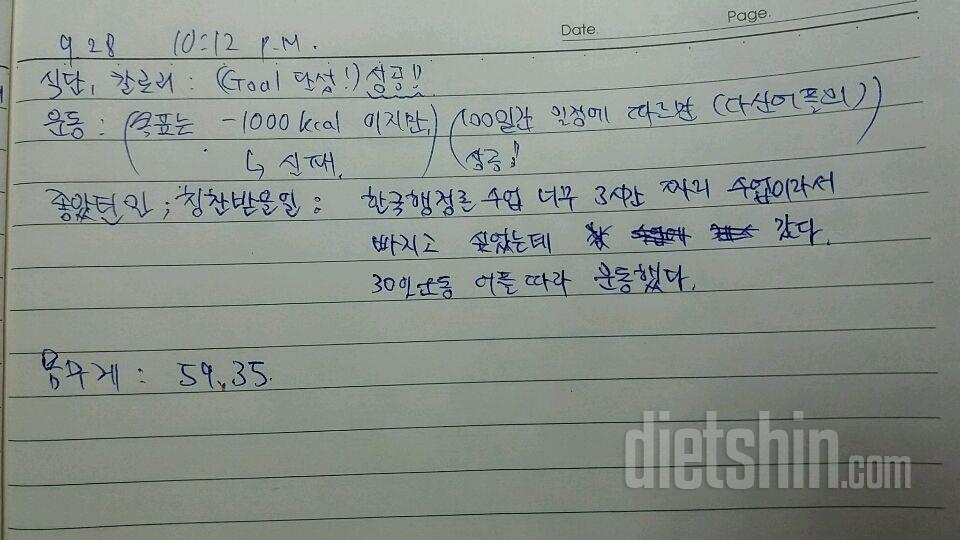 Date.
Page.
9.28 10:12 P.M.
식단, 칼로리 : (Goal 달성!) 성공!!
운동 : (목표는 -1000 kcal 이지만,) (100일간 일정에 따르면 (다신어플의))
↳ 실패. 성공!
좋았던일 ; 칭찬받을일 : 한국행정론 수업 너무 3시간 짜리 수업이라서
빠지고 싶었는데 갔다.
30일운동 어플따라 운동했다.
몸무게 : 59.35.
dietshin.com